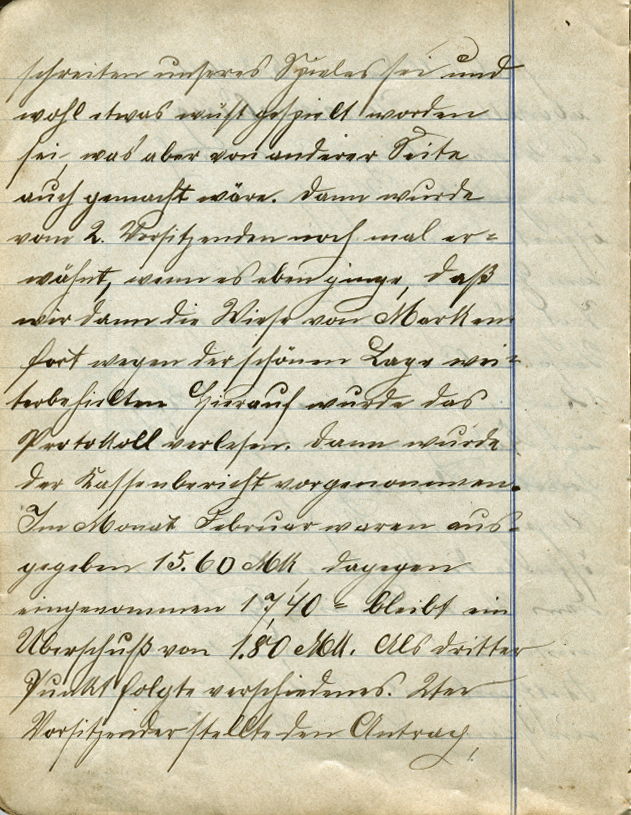 schreiten unseres Spieles sei und
wohl etwas wüst gespielt worden
sei, was aber von anderer Seite
auch gemacht wäre. Dann wurde
vom 2. Vorsitzenden noch mal er=
wähnt, wenn es eben ginge, daß
wir dann die Wiese von Marken
fort wegen der schönen Lage wei=
terbehielten Hierauf wurde das
Protokoll verlesen. Dann wurde
der Kassenbericht vorgenommen.
Im Monat Februar waren aus=
gegeben 15.60 Mk dagegen
eingenommen 17,40 = bleibt ein
Überschuß von 1.80 Mk. Als dritter
Punkt folgte verschiedenes. 2ter
Vorsitzender stellte den Antrag,